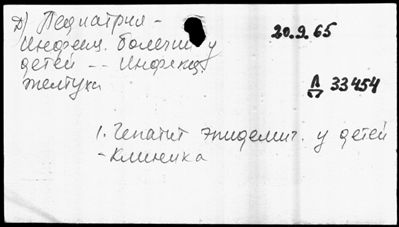 Д) Педиатрия -
Инфекц. болезни у
детей -- Инфекц.
желтуха
20.9.65
Л 33454
1. Гепатит эпидемич. у детей
- клиника